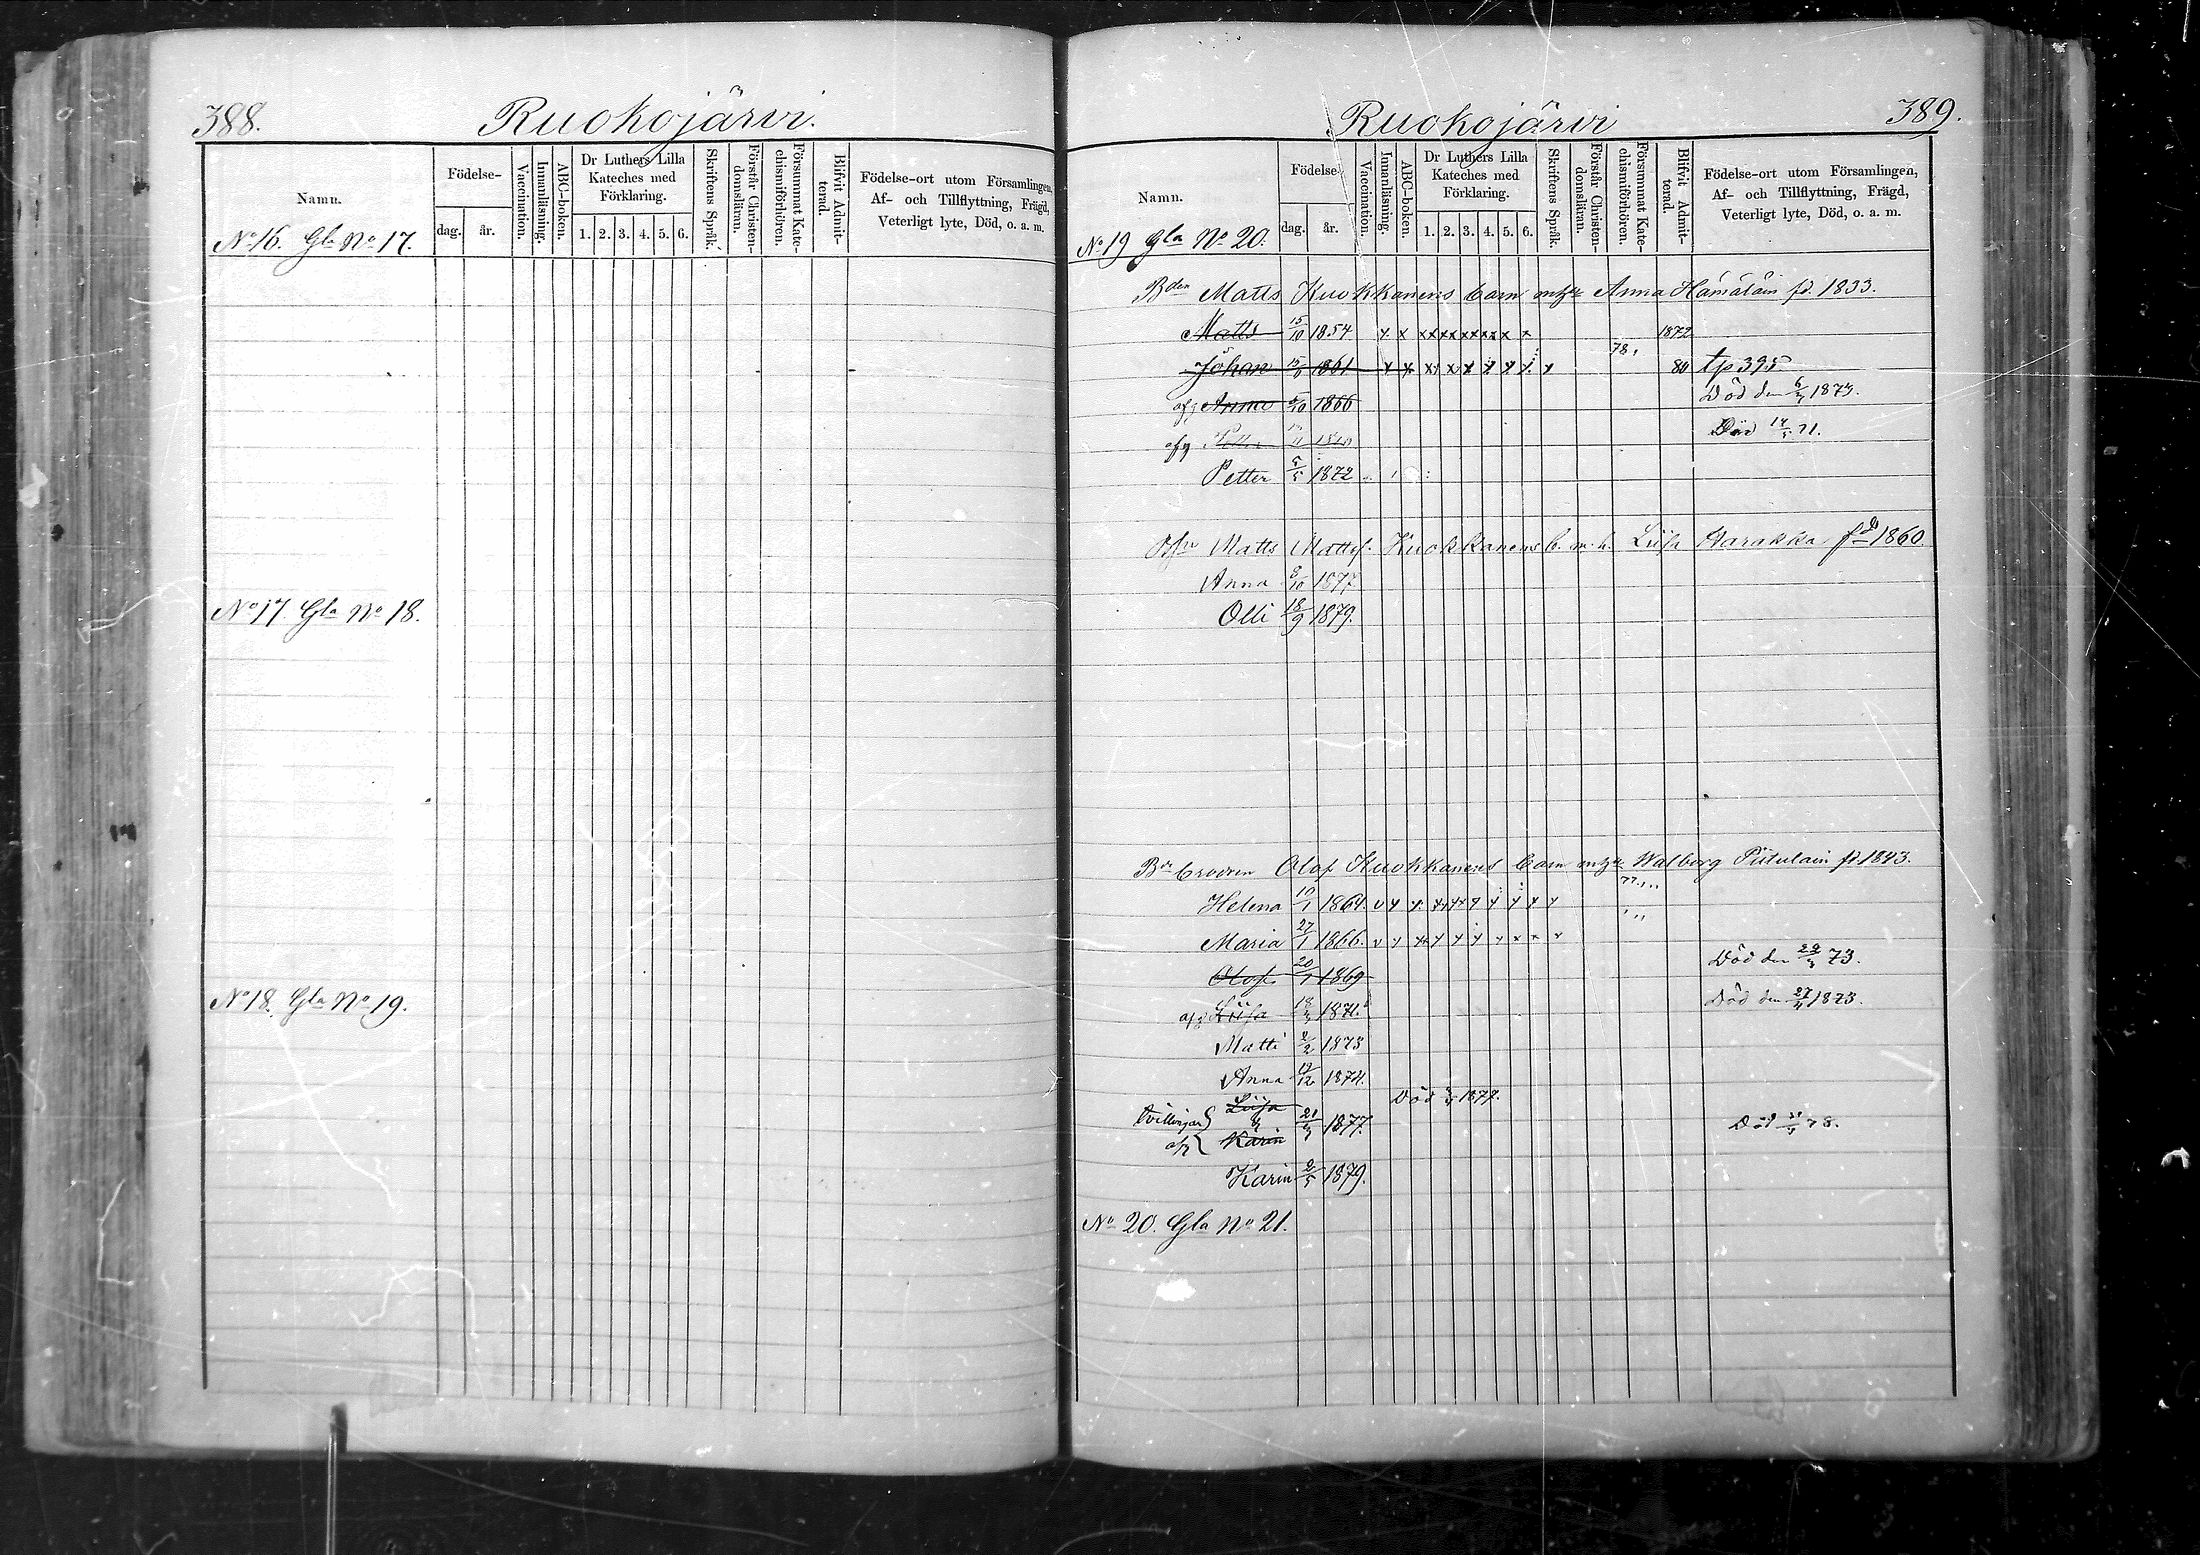 388.
Ruokojärvi.
Namn.
Födelse-
dag.
år.
Vaccination.
Innanläsning.
ABC-boken.
Dr Luthers Lilla
Kateches med
Förklaring.
1. 2. 3. 4. 5. 6.
Skriftens Språk.
Förstår Christen-
domsläran.
Försummat Kate-
chismiförhören.
Blifvit Admit-
terad.
Födelse-ort utom Församlingen,
Af- och Tillflyttning, Frägd,
Veterligt lyte, Död, o. a. m.
No 16. Gla No 17.
No 17. Gla No 18.
No 18. Gla No 19.
Ruokojärvi
389.
Namn.
Födelse-
dag.
år.
Vaccination.
Innanläsning.
ABC-boken.
Dr Luthers Lilla
Kateches med
Förklaring.
1. 2. 3. 4. 5. 6.
Skriftens Språk.
Förstår Christen-
domsläran.
Försummat Kate-
chismiförhören.
Blifvit Admit-
terad.
Födelse-ort utom Församlingen,
Af- och Tillflyttning, Frägd,
Veterligt lyte, Död, o. a. m.
No 19 Gla No 20.
Bden Matts Kuokkanens barn Anna Hämäläin fd. 1833.
Matts 15/10 1854 x x x x x x x x x x x 1872
Johan 15/ 1861 x x x x x x x x x x 78, 80 tp 395
afg Anna /10 1866 Död den 6/ 1873.
afg Död 14/5 71.
Petter 5/5 1872
Matts Mattss. Kuokkanens b. m. h. Liisa Harakka fd 1860.
Anna 8/10 1877
Olli 18/9 1879.
Bde brodren Olof Kuokkanens barn Walborg Pitulain fd. 1843.
Helena 19/1 1864. v x x x x x x x x x x 77,,,
Maria 27/1 1866. v x x x x x x x x x x ,,,
Olof 20/1 1869 Död den 29/3 73.
afg Liisa 18/3 1871. Död den 27/4 1873.
Matti 2/2 1873
Anna 12/12 1874.
tvillingar Liisa Död 1877.
& 21/3 1877.
afg Karin Död 78.
Karin 2/5 1879.
No 20. Gla No 21.